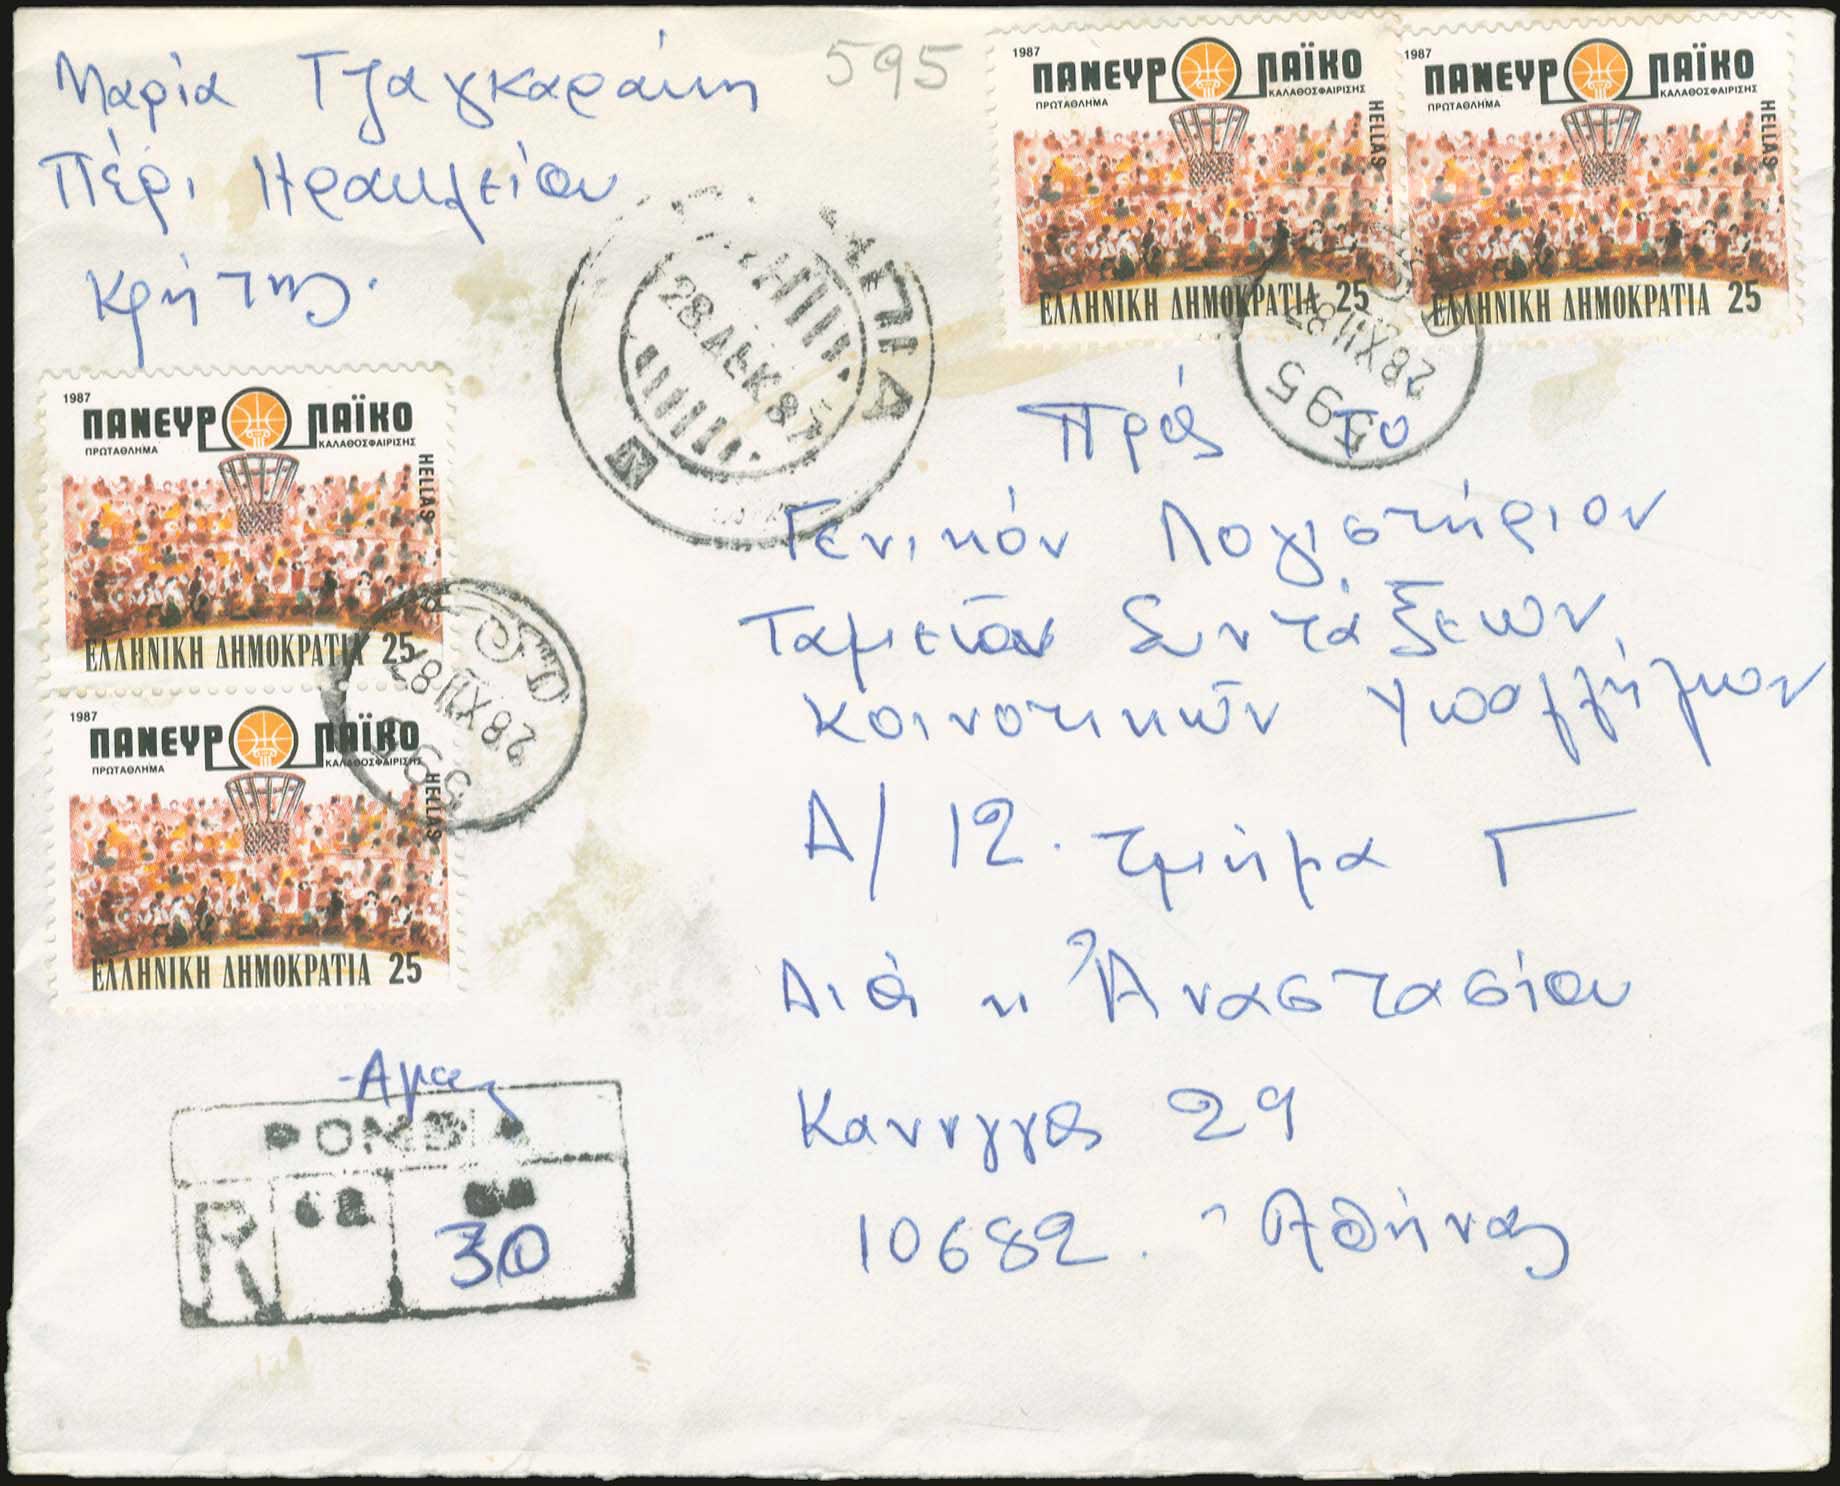 Μαρία Τζαγκαράκη
Πέρι Ηρακλείου
Κρήτης.
595
1987
ΠΑΝΕΥΡ ΠΑΪΚΟ
ΠΡΩΤΑΘΛΗΜΑ ΚΑΛΑΘΟΣΦΑΙΡΙΣΗΣ
HELLAS
ΕΛΛΗΝΙΚΗ ΔΗΜΟΚΡΑΤΙΑ 25
1987
ΠΑΝΕΥΡ ΠΑΪΚΟ
ΠΡΩΤΑΘΛΗΜΑ ΚΑΛΑΘΟΣΦΑΙΡΙΣΗΣ
HELLAS
ΕΛΛΗΝΙΚΗ ΔΗΜΟΚΡΑΤΙΑ 25
28 XII 87
595
28.ΔΕΚ 87
1987
ΠΑΝΕΥΡ ΠΑΪΚΟ
ΠΡΩΤΑΘΛΗΜΑ ΚΑΛΑΘΟΣΦΑΙΡΙΣΗΣ
HELLAS
ΕΛΛΗΝΙΚΗ ΔΗΜΟΚΡΑΤΙΑ 25
1987
ΠΑΝΕΥΡ ΠΑΪΚΟ
ΠΡΩΤΑΘΛΗΜΑ ΚΑΛΑΘΟΣΦΑΙΡΙΣΗΣ
HELLAS
ΕΛΛΗΝΙΚΗ ΔΗΜΟΚΡΑΤΙΑ 25
28 XII 87
595
Πρός Το
Γενικόν Λογιστήριον
Ταμεῖον Συντάξεων
Κοινοτικῶν Υπαλλήλων
Δ/ 12. τμήμα Γ
Διά κ Ἀναστασίου
Καννιγγος 29
10682. Ἀθήνας
POMBIA
R
30